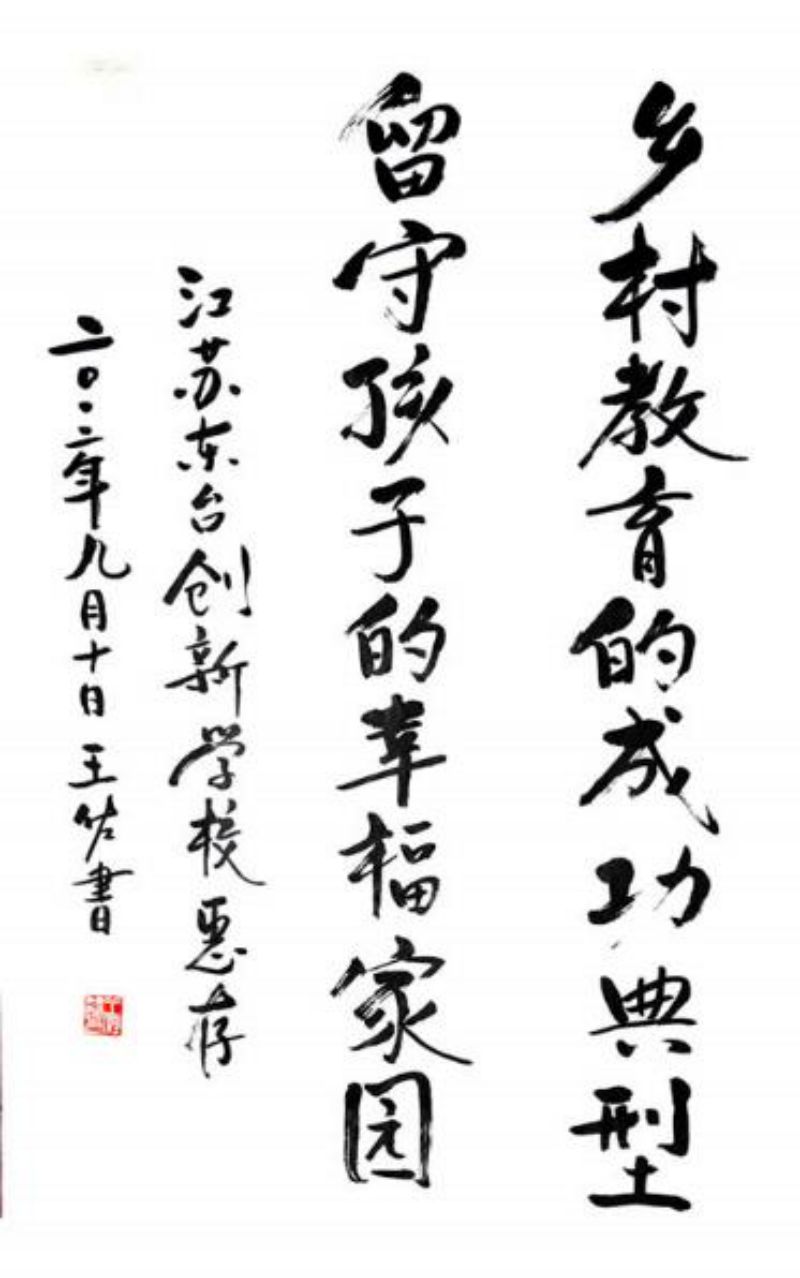 乡村教育的成功典型
留守孩子的幸福家园
江苏东台创新学校惠存
二〇一二年九月十日 王佐書